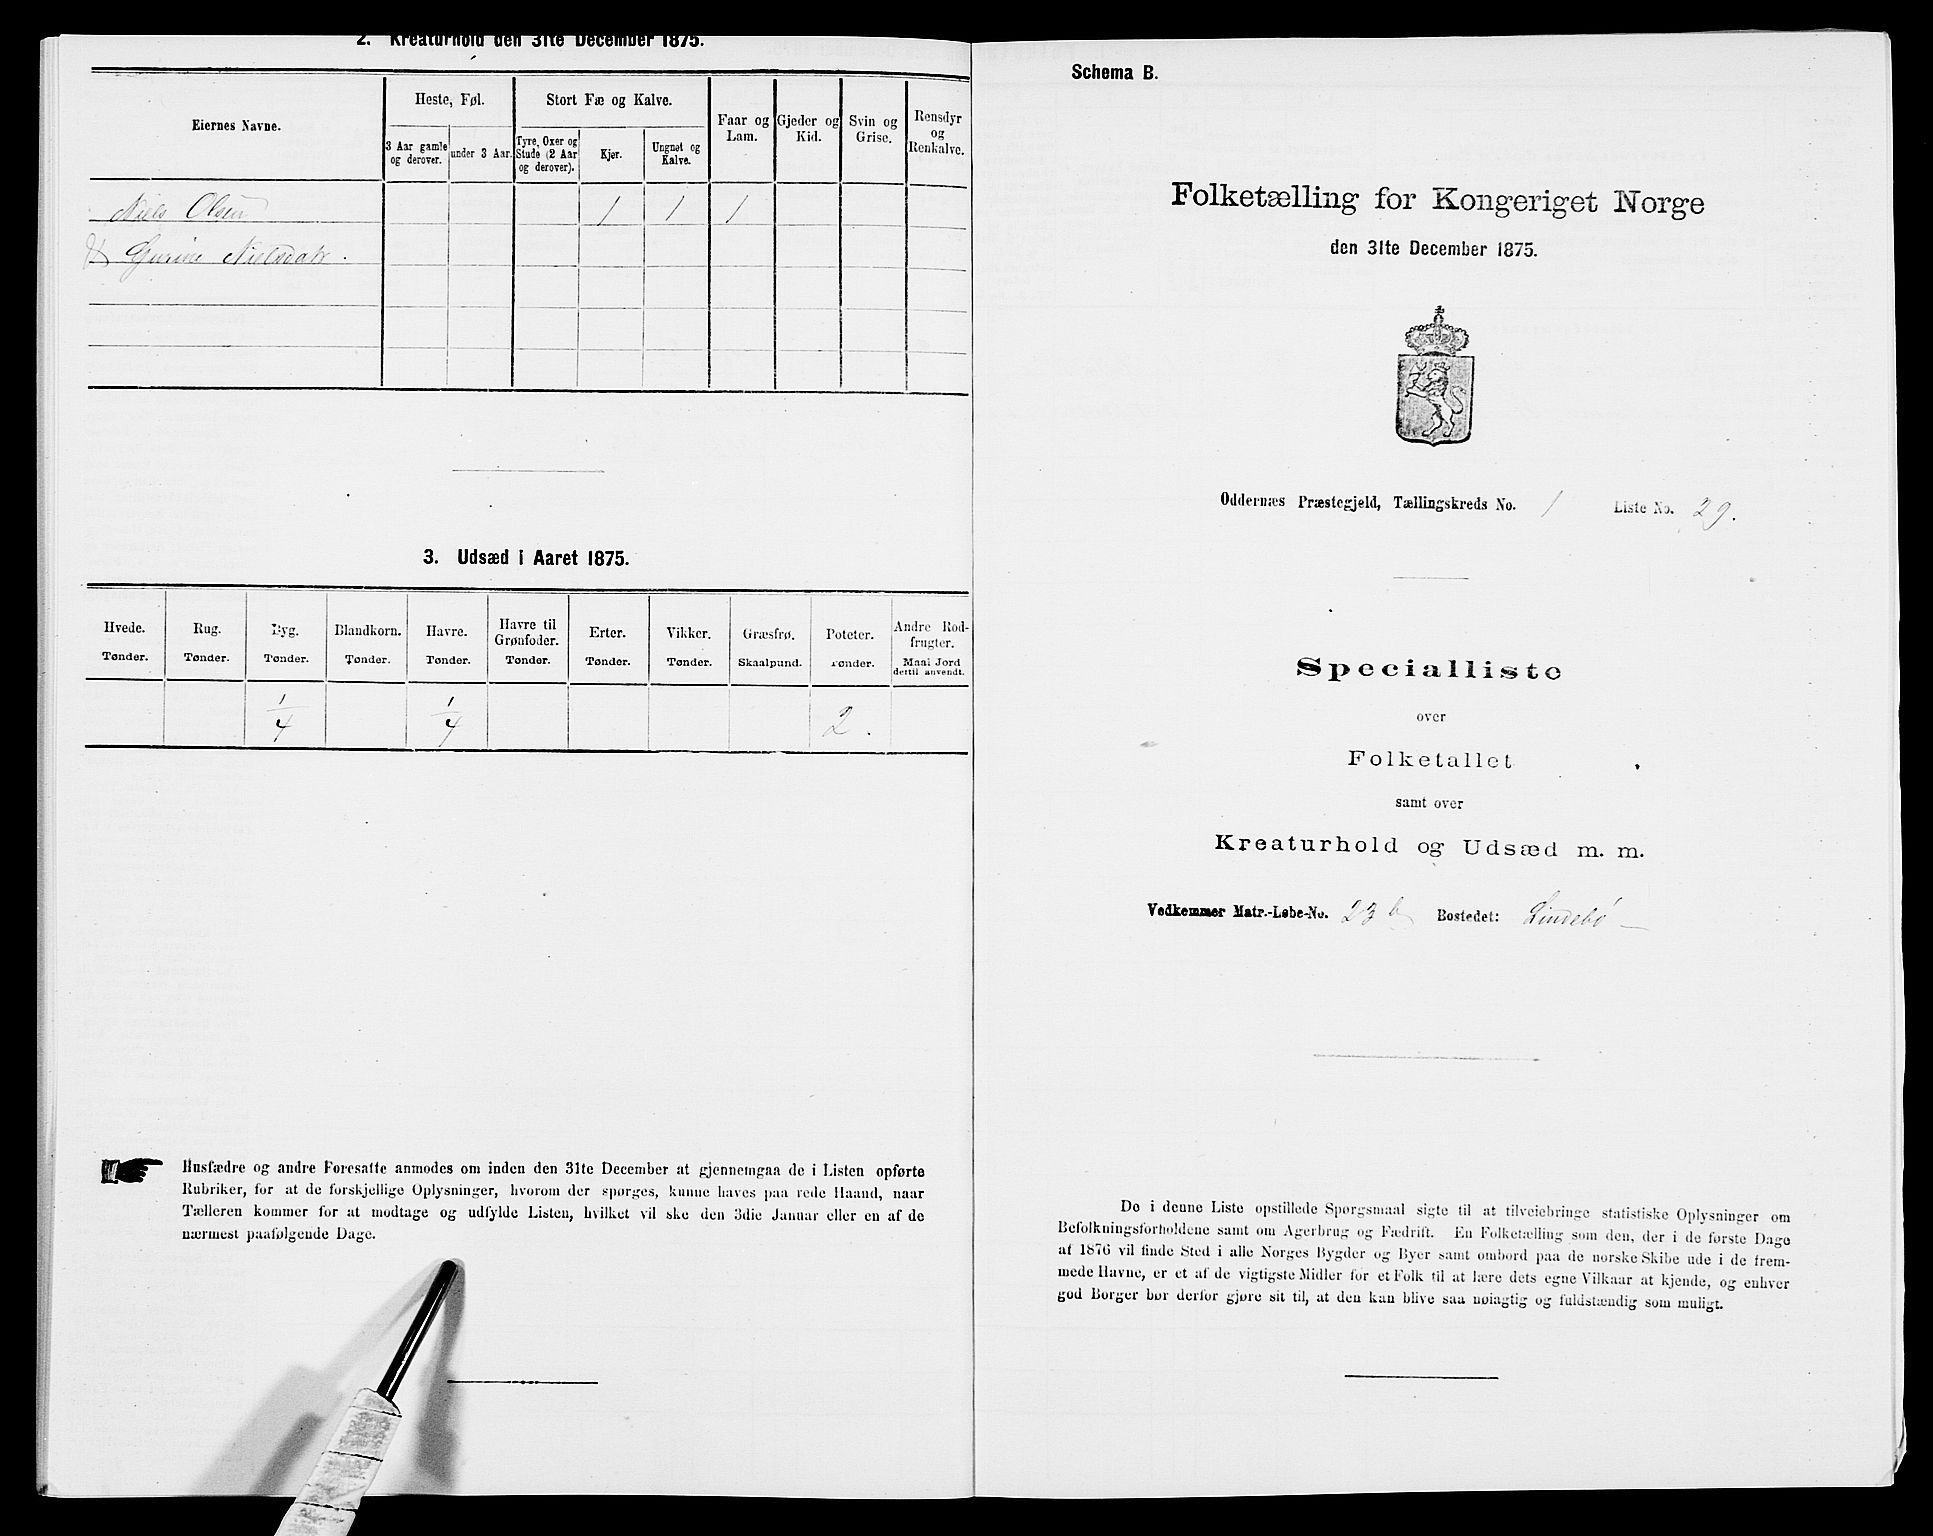 2. Kreaturhold den 31te December 1875.
Eiernes Navne.
Heste, Føl.
3 Aar gamle og derover.
under 3 Aar.
Stort Fæ og Kalve.
Tyre, Oxer og Stude (2 Aar og derover).
Kjør.
Ungnøt og Kalve.
Faar og Lam.
Gjeder og Kid.
Svin og Grise.
Rensdyr og Renkalve.
Niels Olsen 1 1 1
Gurine Nielsdatr.
3. Udsæd i Aaret 1875.
Hvede. Tønder.
Rug. Tønder.
Byg. Tønder.
Blandkorn. Tønder.
Havre. Tønder.
Havre til Grønfoder. Tønder.
Erter. Tønder.
Vikker. Tønder.
Græsfrø. Skaalpund.
Poteter. Tønder.
Andre Rodfrugter. Maal Jord dertil anvendt.
1/4 1/4 2.
Husfædre og andre Foresatte anmodes om inden den 31te December at gjennemgaa de i Listen opførte
Rubriker, for at de forskjellige Oplysninger, hvorom der spørges, kunne haves paa rede Haand, naar
Tælleren kommer for at modtage og udfylde Listen, hvilket vil ske den 3die Januar eller en af de
nærmest paafølgende Dage.
Schema B.
Folketælling for Kongeriget Norge
den 31te December 1875.
Oddernæs Præstegjeld, Tællingskreds No. 1 Liste No. 29.
Specialliste
over
Folketallet
samt over
Kreaturhold og Udsæd m. m.
Vedkommer Matr.-Løbe-No. 23 b Bostedet: Lindebø
De i denne Liste opstillede Spørgsmaal sigte til at tilveiebringe statistiske Oplysninger om
Befolkningsforholdene samt om Agerbrug og Fædrift. En Folketælling som den, der i de første Dage
af 1876 vil finde Sted i alle Norges Bygder og Byer samt ombord paa de norske Skibe ude i de frem-
mede Havne, er et af de vigtigste Midler for et Folk til at lære dets egne Vilkaar at kjende, og enhver
god Borger bør derfor gjøre sit til, at den kan blive saa nøiagtig og fuldstændig som muligt.